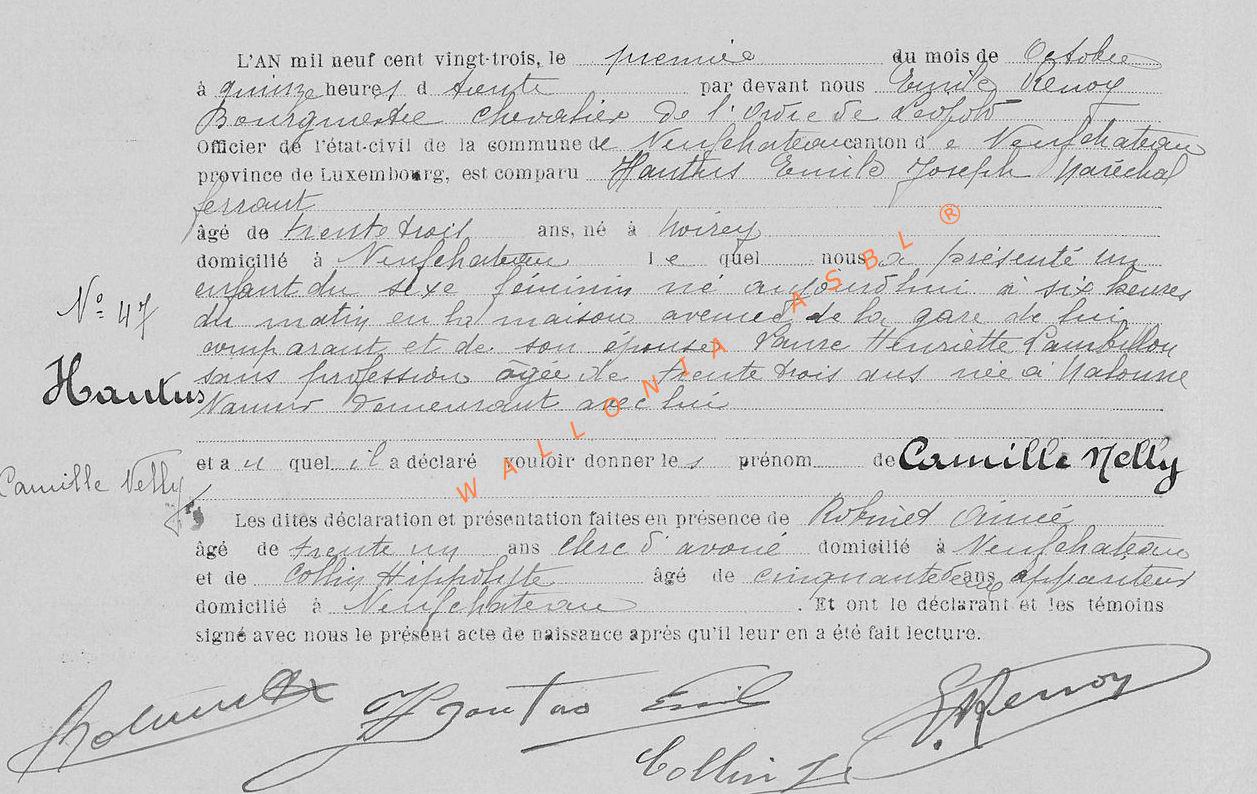 L'AN mil neuf cent vingt-trois, le premier du mois de Octobre
à quinze heures d trente par devant nous Emile Renoy
Bourgmestre Chevalier de l'Ordre de Léopold
Officier de l'état-civil de la commune de Neufchateau canton d e Neufchateau
province de Luxembourg, est comparu Hautus Emile Joseph Maréchal
ferrant
âgé de trente trois ans, né à Noirey
domicilié à Neufchateau l e quel nous a présenté un
enfant du sexe féminin né aujourd'hui à six heures
du matin en la maison avenue de la gare de lui
comparant et de son épouse Laure Henriette Lambillon
sans profession âgée de trente trois ans née à Malonne
Namur demeurant avec lui
N° 47
Hautus
et a u quel il a déclaré vouloir donner le s prénom de Camille Nelly
Camille Nelly
Les dites déclaration et présentation faites en présence de Robinet Aimé
âgé de trente un ans clerc d'avoué domicilié à Neufchateau
et de Collin Hippolyte âgé de cinquante deux ans appariteur
domicilié à Neufchateau . Et ont le déclarant et les témoins
signé avec nous le présent acte de naissance après qu'il leur en a été fait lecture.
Hautus Emil
E. Renoy
Collin
WALLONIA ASBL ®